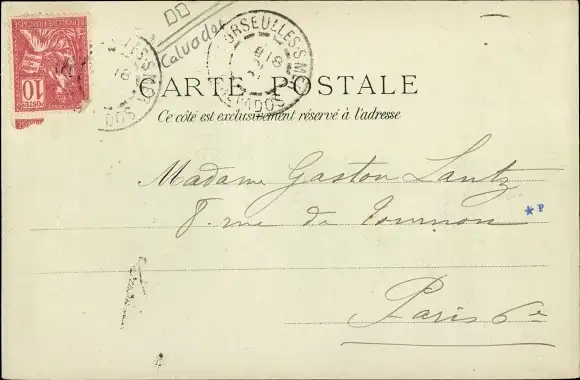 DD
Calvados
COURSEULLES-S-MER
CALVADOS
POSTES
10
CARTE POSTALE
Ce côté est exclusivement réservé à l'adresse
Madame Gaston Lantz
8. rue de Tournon
*P
Paris 6e